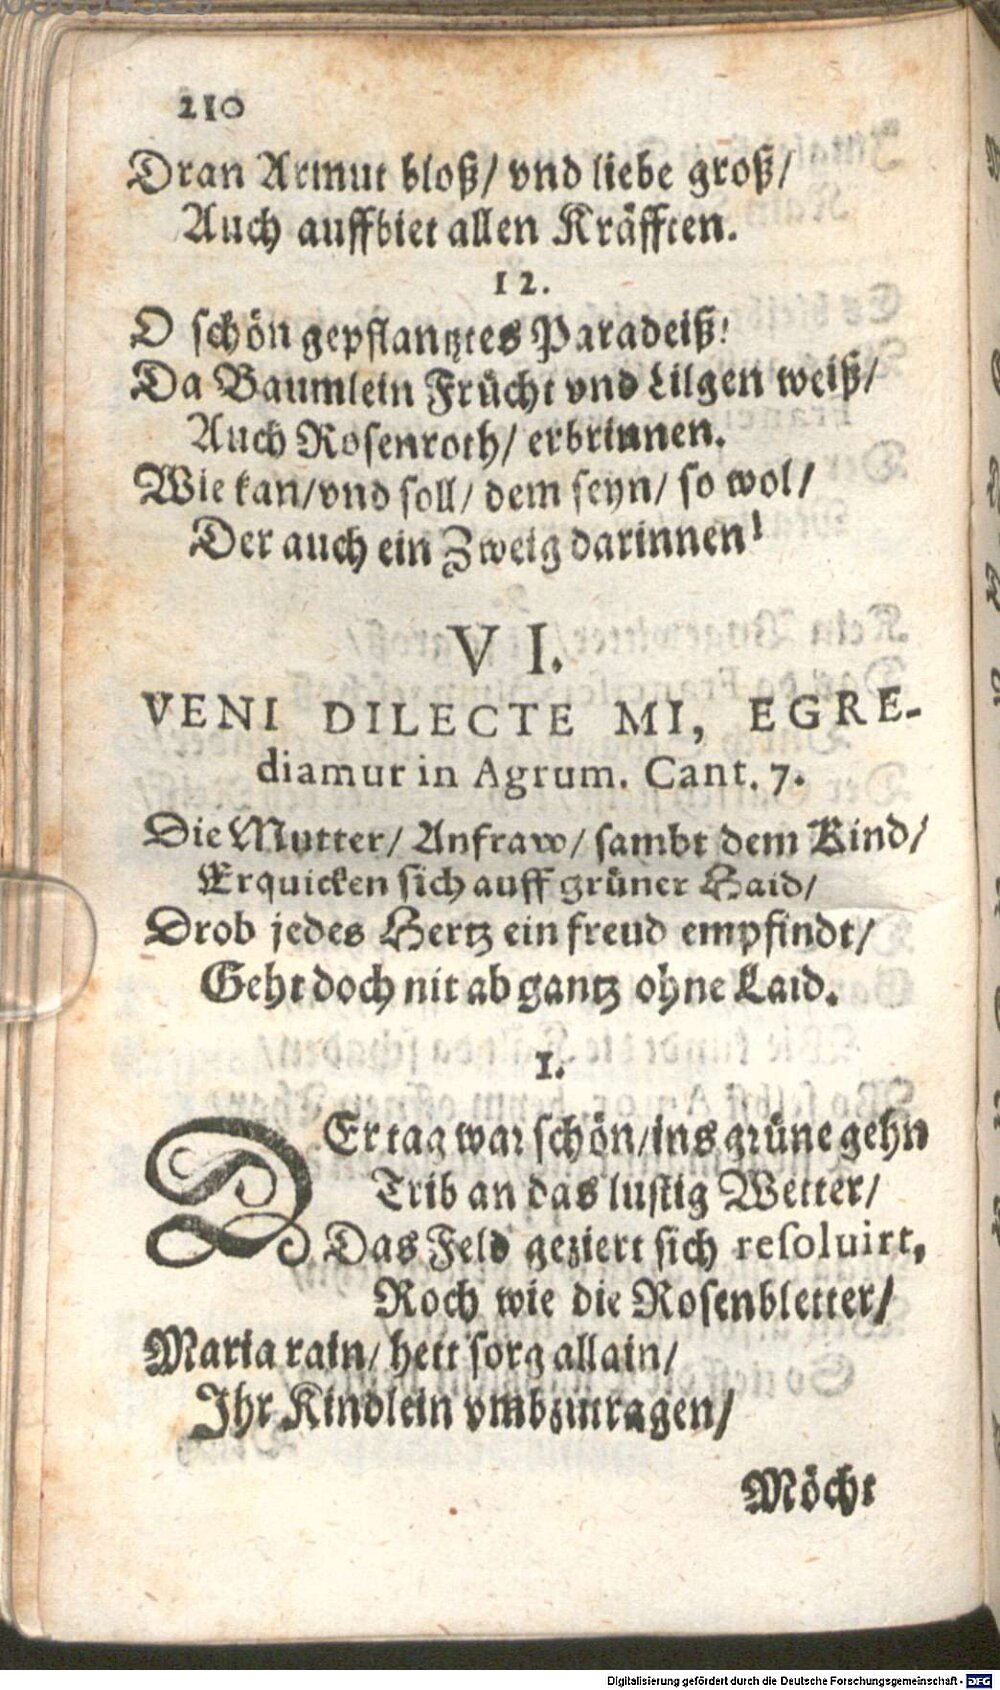 210
Dran Armut bloß/ vnd liebe groß/
Auch auffbiet allen Kräfften.
12.
O schön gepflantztes Paradeiß!
Da Baumlein Frücht vnd Lilgen weiß/
Auch Rosenroth/ erbrinnen.
Wie kan/vnd soll/ dem seyn/ so wol/
Der auch ein Zweig darinnen!
VI.
VENI DILECTE MI, EGRE-
diamur in Agrum. Cant. 7.
Die Mutter/ Anfraw/ sambt dem Kind/
Erquicken sich auff grüner Haid/
Drob jedes Hertz ein freud empfindt/
Geht doch nit ab gantz ohne Laid.
1.
DEr tag war schön/ins grüne gehn
Trib an das lustig Wetter/
Das Feld geziert sich resoluirt,
Roch wie die Rosenbletter/
Maria rain/ hett sorg allain/
Ihr Kindlein vmbzutragen/
Möcht
Digitalisierung gefördert durch die Deutsche Forschungsgemeinschaft - DFG